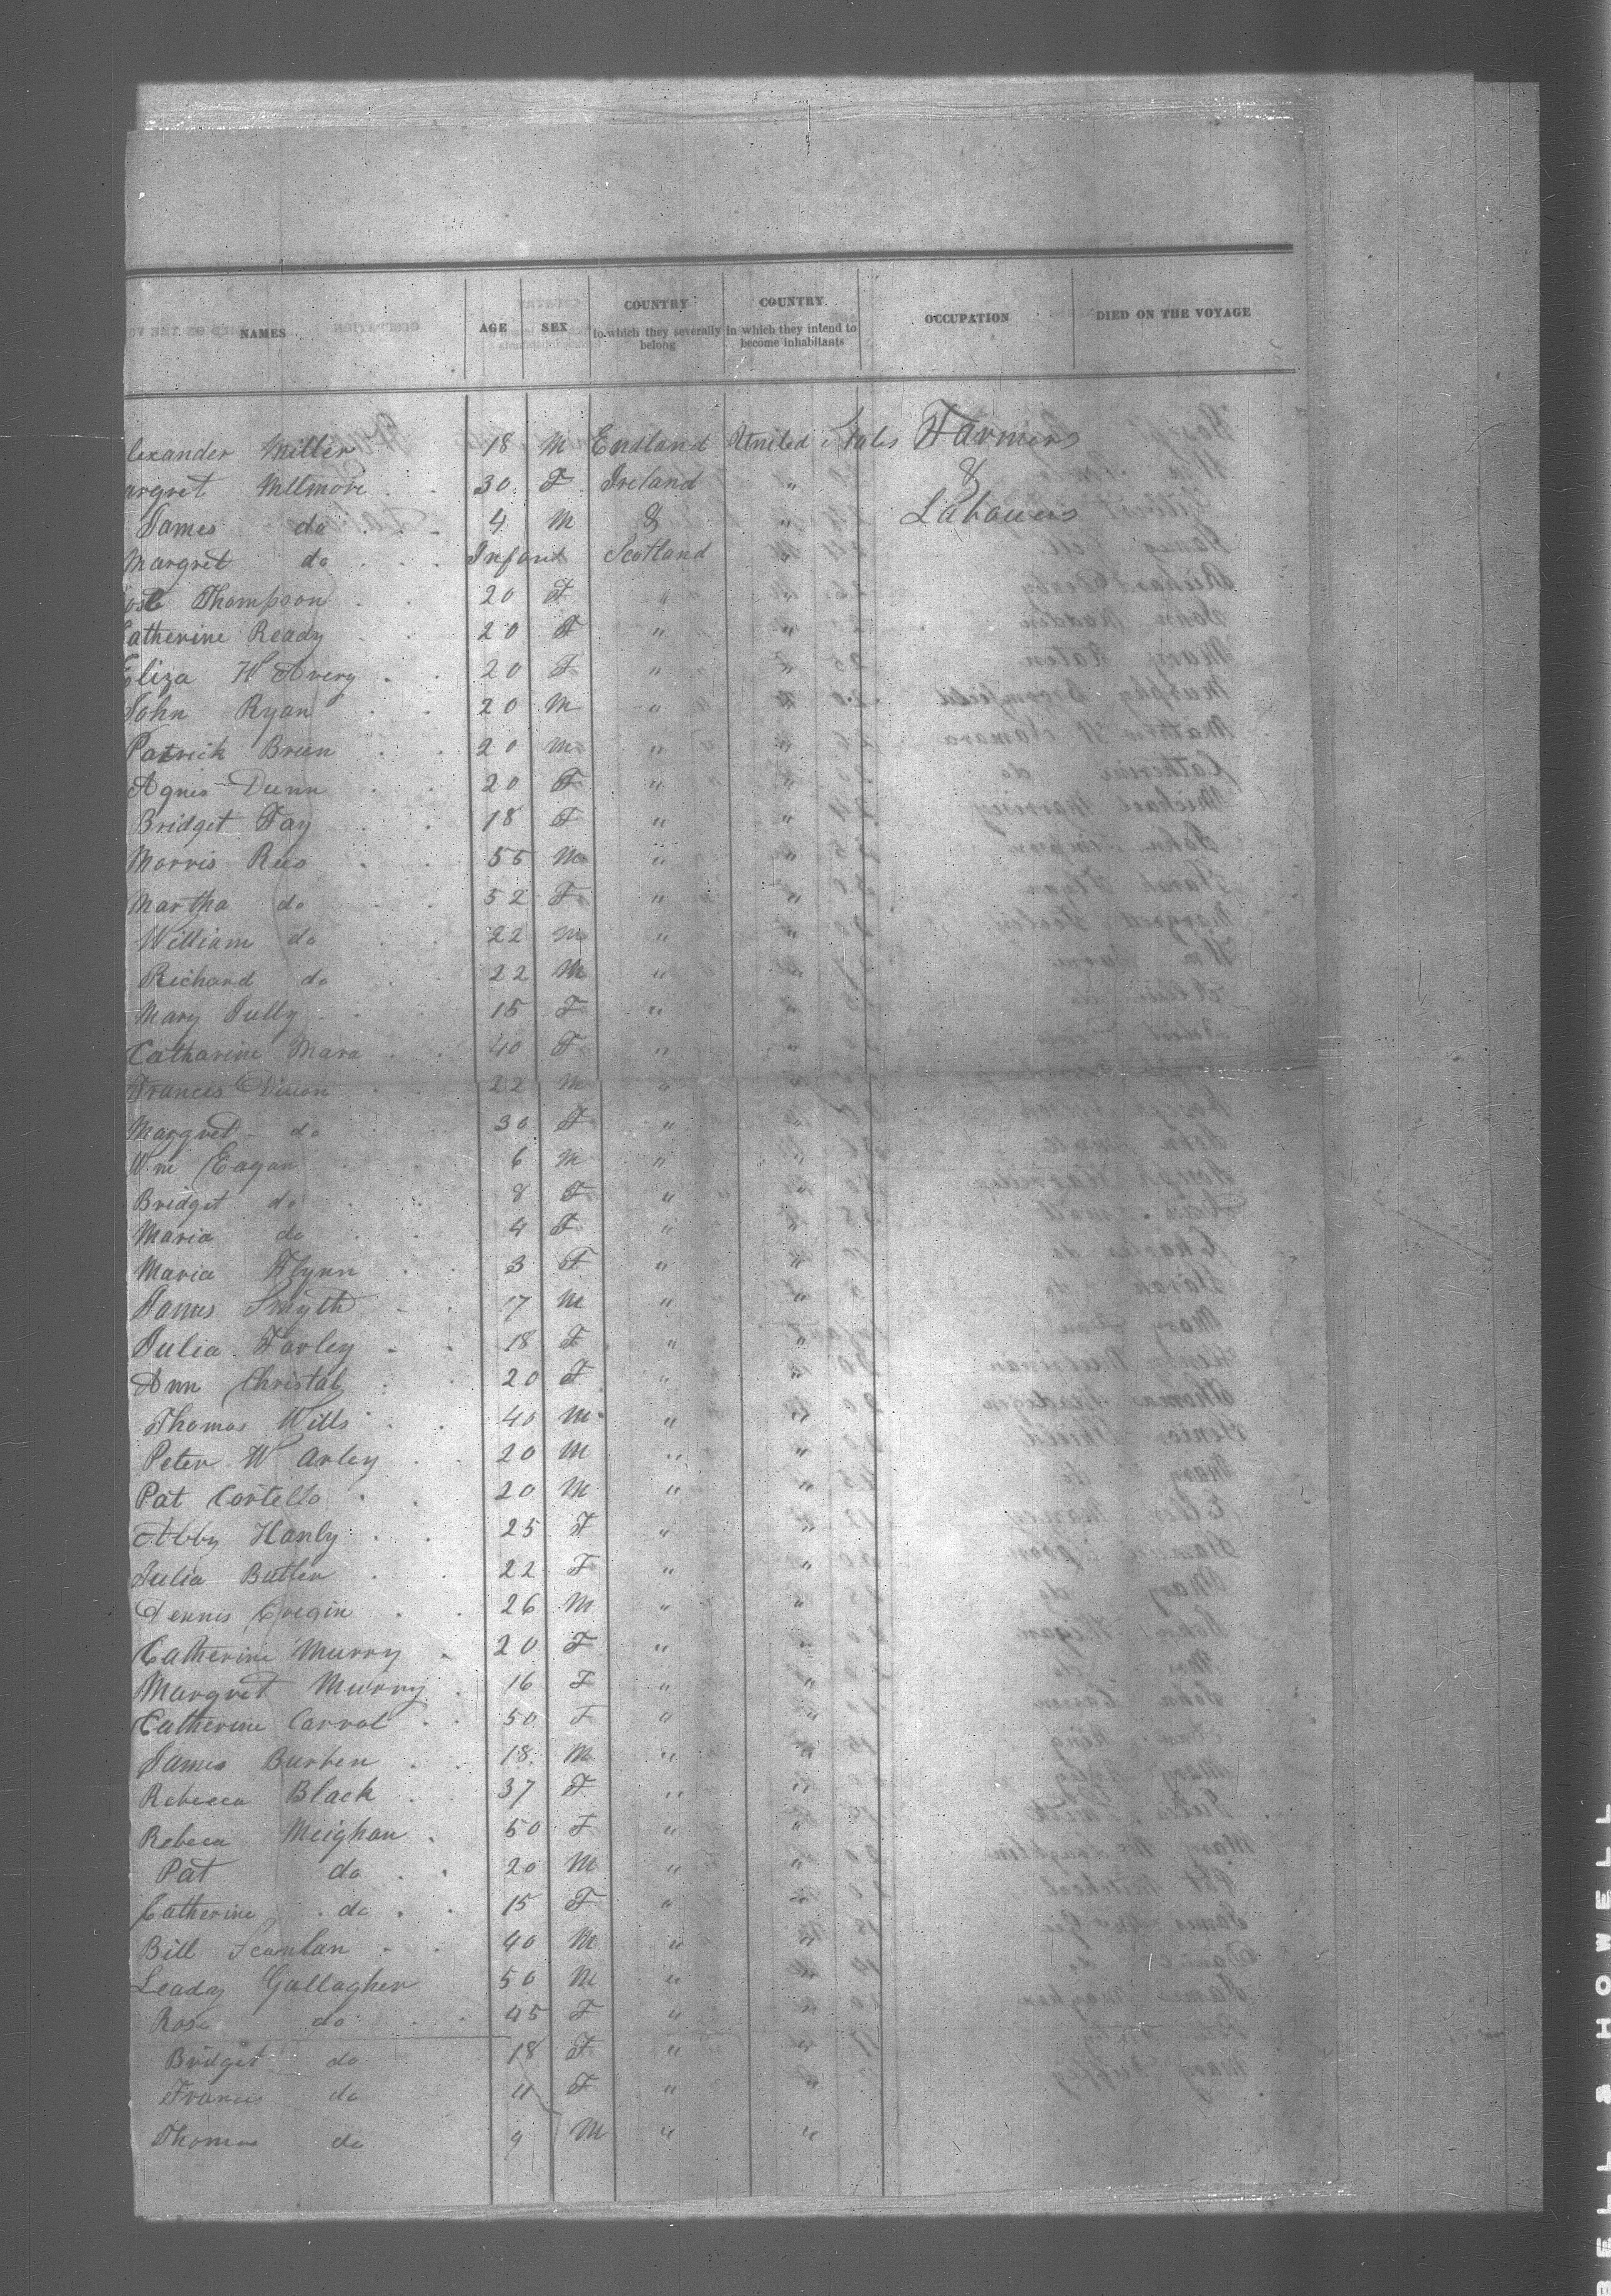 NAMES AGE SEX COUNTRY to which they severally belong COUNTRY in which they intend to become inhabitants OCCUPATION DIED ON THE VOYAGE
lexander Miller 18 M England United States Farmers
argret 30 F Ireland " &
James do 4 M & " Labouers
Margret do Infant Scotland "
Thompson 20 F " "
atherine Ready 20 F " "
Eliza W Avery 20 F " "
John Ryan 20 M " "
Patrick Brien 20 M " "
Agnes Dunn 20 F " "
Bridget Fay 18 F " "
Morris Rees 55 M " "
Martha do 52 F " "
William do 22 M " "
Richard do 22 M " "
Mary Tully 15 F " "
Catharine Mara 40 F " "
Frances Dixon 22 M " "
Margret do 30 F " "
Wm Eagan 6 M " "
Bridget do 8 F " "
Maria do 4 F " "
Maria Flynn 3 F " "
James Smyth 17 M " "
Julia Farley 18 F " "
Ann Christal 20 F " "
Thomas Wills 40 M " "
Peter W Arley 20 M " "
Pat Costello 20 M " "
Abby Hanly 25 F " "
Julia Butler 22 F " "
Dennis Cregin 26 M " "
Catherine Murry 20 F " "
Margret Murry 16 F " "
Catherine Carrol 50 F " "
James Burben 18 M " "
Rebecca Black 37 F " "
Rebeca Meighan 50 F " "
Pat do 20 M " "
Catherine do 15 F " "
Bill Scanlan 40 M " "
Leady Gallagher 50 M " "
Rose do 45 F "
Bridget do 18 F " "
Frances do 11 F " "
Thomas do 9 M " "
BELL & HOWELL